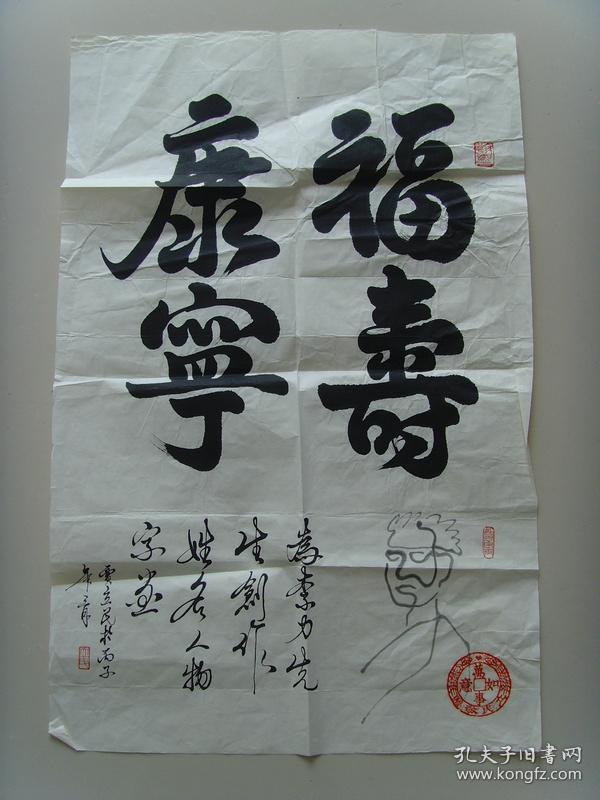 福壽
康寧
為李力先
生創作
姓名人物
字画
于丙子
萬事如意
孔夫子旧书网
www.kongfz.com